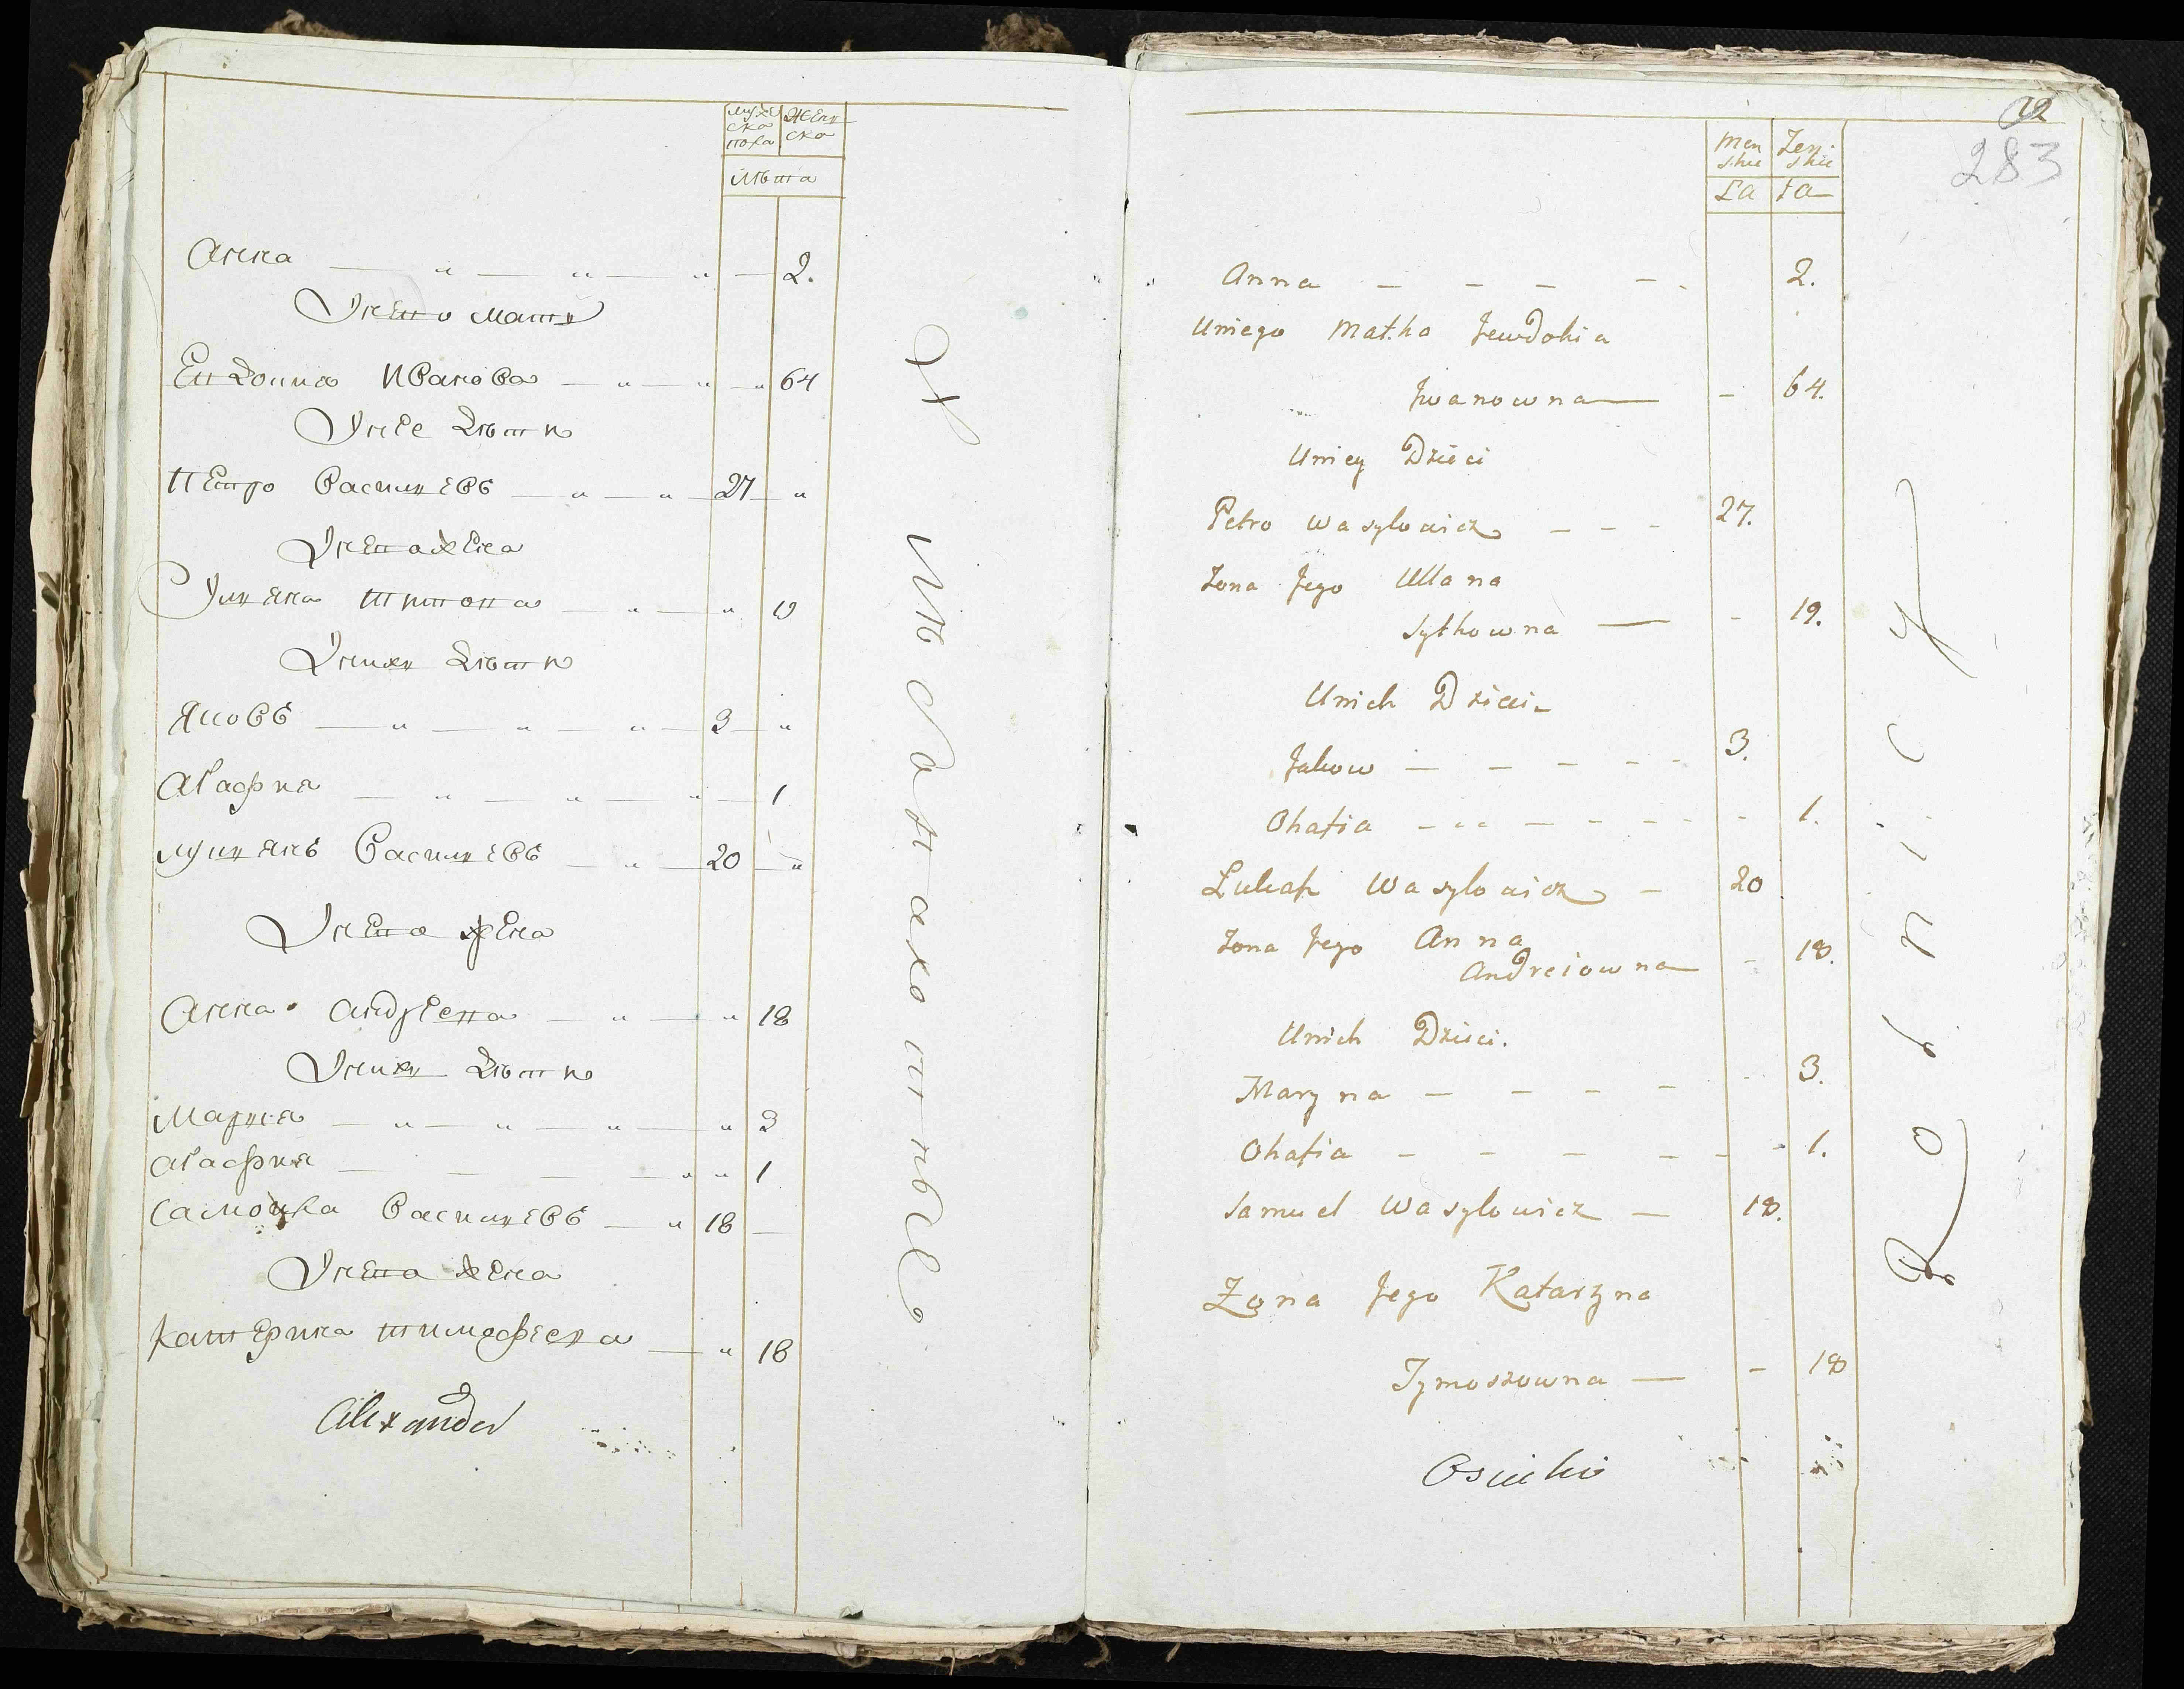 муже женъ
ска ска
пола
лѣта
Анна 2.
Унего мати
Евдокия Иванова 64
Унее дѣти
Петро Василевъ 27
Унего жена
Улияна Титова 19
Уних дѣти
Яковъ 3
Агафия 1
Лукянъ Василевъ 20
Унего жена
Анна Андреева 18
Уних дѣти
Мария 3
Агафия 1
Самойла Василевъ 18
Унего жена
Катерина Тимофеева 18
Alexander
12
283
Men Zen
skie skie
La ta
Anna 2.
Uniego Matka Jewdokia
Jwanowna 64.
Uniey Dzieci
Petro Wasylowicz 27.
Zona Jego Ullana
Sytkowna 19.
Unich Dzieci
Jakow 3.
Ohafia 1.
Lukasz Wasylowicz 20
Zona Jego Anna
Andreiowna 18.
Unich Dzieci.
Maryna 3.
Ohafia 1.
Samuel Wasylowicz 18.
Zona Jego Katarzyna
Tymoszowna 18
Rolnicy